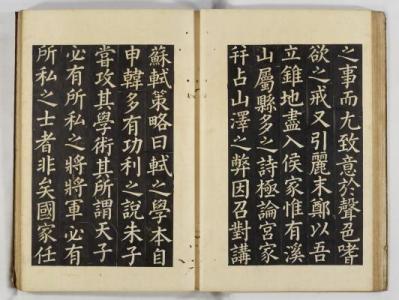 之事而尢致意於聲色嗜
欲之戒又引麗末鄭以吾
立錐地盡入侯家惟有溪
山屬縣多之詩極論宮家
幷占山澤之弊因召對講
蘇軾策略曰軾之學本自
申韓多有功利之說朱子
嘗攻其學術其所謂天子
必有所私之將將軍必有
所私之士者非矣國家任